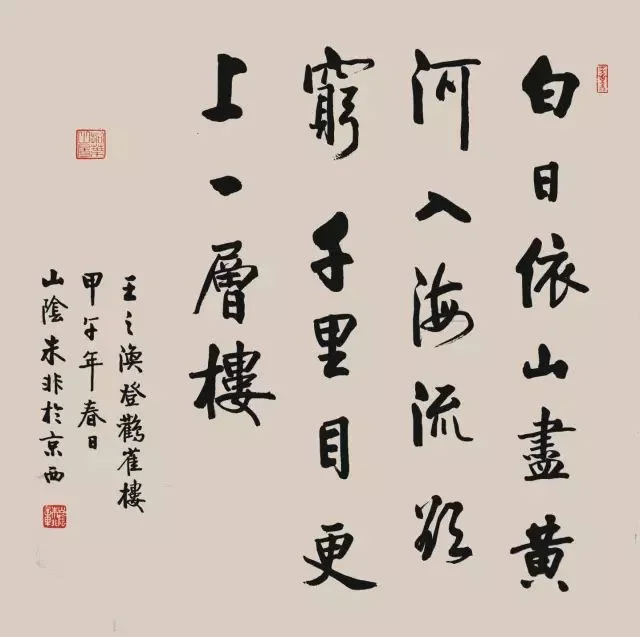 白日依山盡黃
河入海流欲
窮千里目更
上一層樓
王之渙登鸛雀樓
甲午年春日
山陰朱非於京西